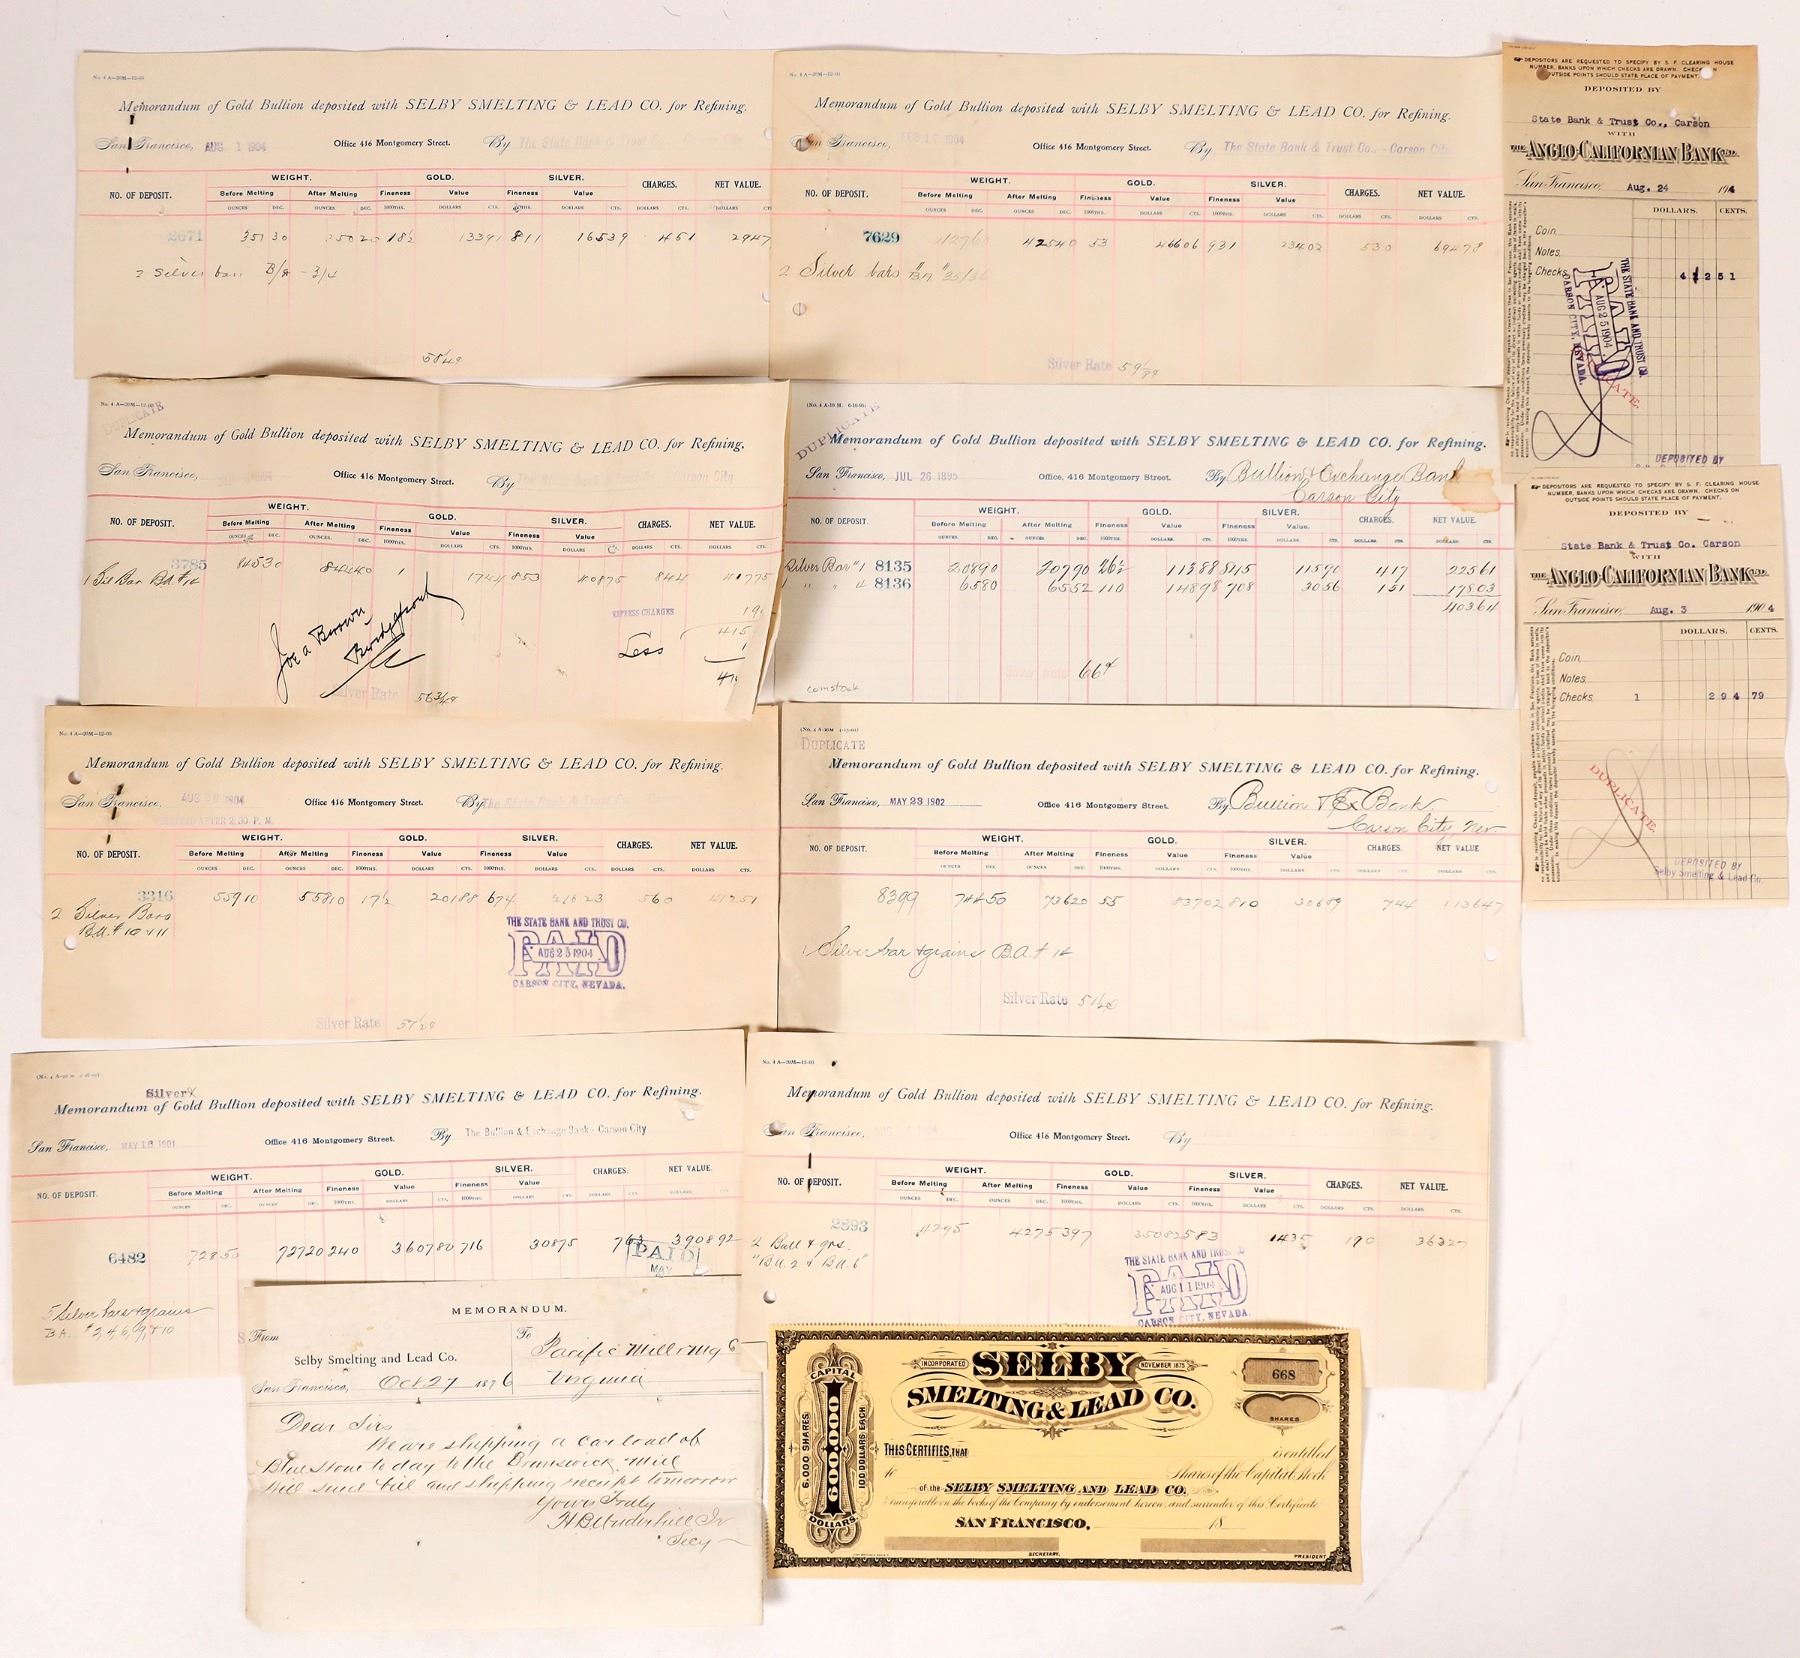 No. 4 A—20M—12-03
Memorandum of Gold Bullion deposited with SELBY SMELTING & LEAD CO. for Refining.
San Francisco, AUG 1 1904 Office 416 Montgomery Street. By The State Bank & Trust Co.
NO. OF DEPOSIT. WEIGHT. GOLD. SILVER. CHARGES. NET VALUE.
Before Melting After Melting Fineness Value Fineness Value
OUNCES DEC. OUNCES DEC. 1000THS. DOLLARS CTS. 1000THS. DOLLARS CTS. DOLLARS CTS. DOLLARS
2671 35130 35020 18½ 13391 811 16539 451 2947
2 Silver bars B/A - 3/4
Memorandum of Gold Bullion deposited with SELBY SMELTING & LEAD CO. for Refining.
San Francisco, 1904 Office 416 Montgomery Street. By The State Bank & Trust Co. - Carson City
NO. OF DEPOSIT. WEIGHT. GOLD. SILVER. CHARGES. NET VALUE.
Before Melting After Melting Fineness Value Fineness Value
OUNCES DEC. OUNCES DEC. 1000THS. DOLLARS CTS. 1000THS. DOLLARS CTS. DOLLARS CTS. DOLLARS CTS.
7629 42760 42540 53 46606 931 23402 530 69478
2 Silver bars "BA" 35/36
Silver Rate
DEPOSITORS ARE REQUESTED TO SPECIFY BY S. F. CLEARING HOUSE
NUMBER, BANKS UPON WHICH CHECKS ARE DRAWN. CHECKS ON
OUTSIDE POINTS SHOULD STATE PLACE OF PAYMENT.
DEPOSITED BY
State Bank & Trust Co., Carson
WITH
THE ANGLO-CALIFORNIAN BANK LTD.
San Francisco, Aug. 24 1904
DOLLARS. CENTS.
Coin
Notes
Checks 412 51
THE STATE BANK AND TRUST CO.
PAID
AUG 25 1904
CARSON CITY, NEVADA.
DUPLICATE.
DEPOSITED BY
DUPLICATE
Memorandum of Gold Bullion deposited with SELBY SMELTING & LEAD CO. for Refining.
San Francisco, Office 416 Montgomery Street. By Carson City
NO. OF DEPOSIT. WEIGHT. GOLD. SILVER. CHARGES. NET VALUE.
Before Melting After Melting Fineness Value Fineness Value
3785 84530 84440 1 1744 853 40875 844 41775
1 Sil Bar BA #14
EXPRESS CHARGES 19
415
Less 1
Joe a Brown
Bridgeport
Silver Rate
(No. 4 A-10 M. 6-10-95)
DUPLICATE
Memorandum of Gold Bullion deposited with SELBY SMELTING & LEAD CO. for Refining.
San Francisco, JUL 26 1895 Office, 416 Montgomery Street. By Bullion & Exchange Bank
Carson City
NO. OF DEPOSIT. WEIGHT. GOLD. SILVER. CHARGES. NET VALUE.
Before Melting After Melting Fineness Value Fineness Value.
Silver Bar #1 8135 20890 20790 26½ 11388 845 11590 417 22561
1 " " 4 8136 6580 6552 110 14898 708 3056 151 17803
40364
Silver Rate 66¢
comstock
DEPOSITORS ARE REQUESTED TO SPECIFY BY S. F. CLEARING HOUSE
NUMBER, BANKS UPON WHICH CHECKS ARE DRAWN. CHECKS ON
OUTSIDE POINTS SHOULD STATE PLACE OF PAYMENT.
DEPOSITED BY
State Bank & Trust Co. Carson
WITH
THE ANGLO-CALIFORNIAN BANK LTD.
San Francisco, Aug. 3 1904
DOLLARS. CENTS.
Coin
Notes
Checks 1 294 79
DUPLICATE.
DEPOSITED BY
Selby Smelting & Lead Co.
No. 4 A—20M—12-03
Memorandum of Gold Bullion deposited with SELBY SMELTING & LEAD CO. for Refining.
San Francisco, AUG 1904 Office 416 Montgomery Street. By The State Bank & Trust Co.
AFTER 2.30 P. M.
NO. OF DEPOSIT. WEIGHT. GOLD. SILVER. CHARGES. NET VALUE.
Before Melting After Melting Fineness Value Fineness Value
OUNCES DEC. OUNCES DEC. 1000THS. DOLLARS CTS. 1000THS. DOLLARS CTS. DOLLARS CTS. DOLLARS CTS.
3316 55910 55810 17½ 20188 674 21623 560 41251
2 Silver Bars
B.A. # 10 & 11
THE STATE BANK AND TRUST CO.
PAID
AUG 25 1904
CARSON CITY, NEVADA.
Silver Rate
DUPLICATE
Memorandum of Gold Bullion deposited with SELBY SMELTING & LEAD CO. for Refining.
San Francisco, MAY 23 1902 Office 416 Montgomery Street. By Bullion & Ex Bank
Carson City, Nev
NO. OF DEPOSIT. WEIGHT. GOLD. SILVER. CHARGES. NET VALUE
Before Melting After Melting Fineness Value Fineness Value
8399 74450 73620 55 83702 810 30689 744 113647
1 Silver bar & grains B.A. # 14
Silver Rate
Silver
Memorandum of Gold Bullion deposited with SELBY SMELTING & LEAD CO. for Refining.
San Francisco, MAY 1901 Office 416 Montgomery Street. By The Bullion & Exchange Bank - Carson City
NO. OF DEPOSIT. WEIGHT. GOLD. SILVER. CHARGES. NET VALUE.
Before Melting After Melting Fineness Value Fineness Value
6482 72850 72720 240 360780 716 30875 763 390892
PAID
MAY
5 Silver bars & grains
BA. # 2, 4, 6, 9, & 10
No. 4 A—20M—12-03
Memorandum of Gold Bullion deposited with SELBY SMELTING & LEAD CO. for Refining.
San Francisco, 1904 Office 416 Montgomery Street. By
NO. OF DEPOSIT. WEIGHT. GOLD. SILVER. CHARGES. NET VALUE.
Before Melting After Melting Fineness Value Fineness Value
OUNCES DEC. OUNCES DEC. 1000THS. DOLLARS CTS. 1000THS. DOLLARS CTS. DOLLARS CTS. DOLLARS CTS.
2893 4295 4275 397 35082 583 1435 190 36327
2 Bull & grs.
"B.A. 2 & B.A. 6"
THE STATE BANK AND TRUST CO
PAID
AUG 11 1904
CARSON CITY, NEVADA.
MEMORANDUM.
From To
Selby Smelting and Lead Co. Pacific Mill & Mg C
San Francisco, Oct 27 1876 Virginia
Dear Sirs
We are shipping a car load of
Blue stone to day to the Brunswick Mill
Will send bill and shipping receipt tomorrow
Yours Truly
H B Underhill Jr
Secy
INCORPORATED SELBY NOVEMBER 1875
SMELTING & LEAD CO.
668
SHARES
CAPITAL
600.000
DOLLARS.
6.000 SHARES
100 DOLLARS EACH
THIS CERTIFIES, THAT is entitled
to Shares of the Capital Stock
of the SELBY SMELTING AND LEAD CO.
Transferable on the books of the Company by endorsement hereon, and surrender of this Certificate
SAN FRANCISCO, 18
SECRETARY. PRESIDENT